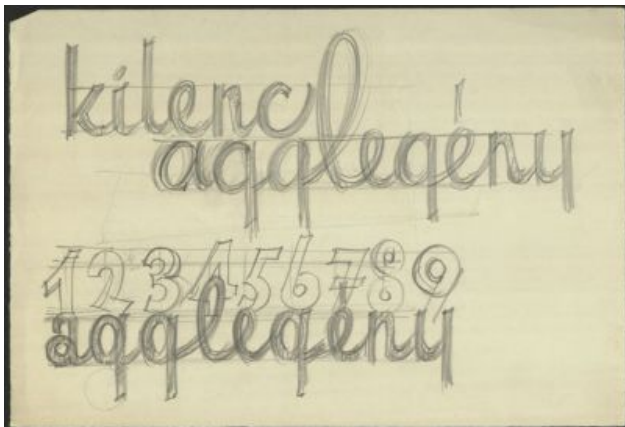 kilenc
agglegény
123456789
agglegény